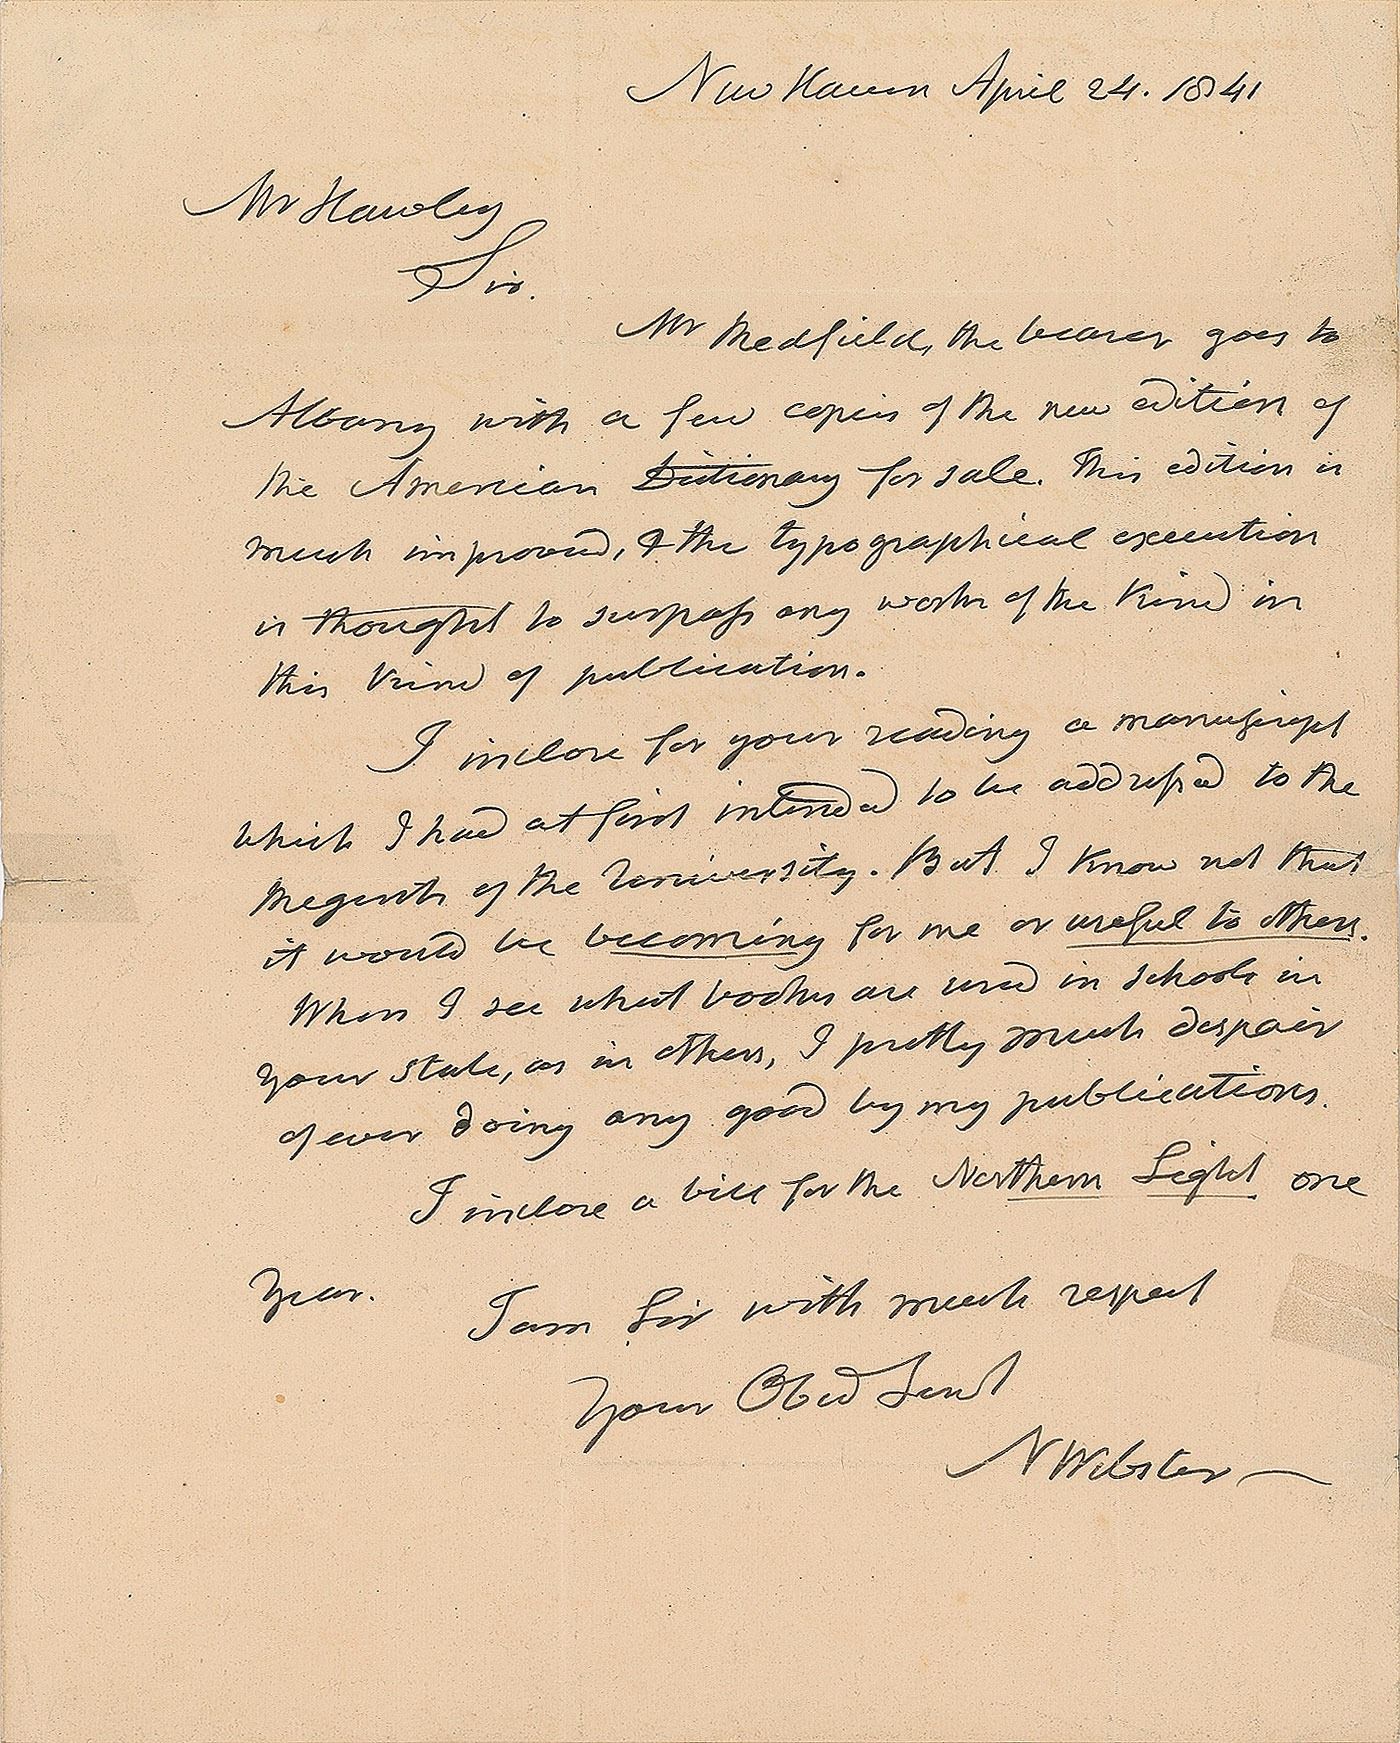 New Haven April 24. 1841
Mr Hawley
Sir.
Mr Medfield, the bearer goes to
Albany with a few copies of the new edition of
the American Dictionary for sale. This edition is
much improved, & the typographical execution
is thought to surpass any work of the kind in
this kind of publication.
I inclose for your reading a manuscript
which I had at first intended to be addressed to the
Regents of the University. But I know not that
it would be becoming for me or useful to others.
When I see what books are used in schools in
your state, as in others, I pretty much despair
of ever doing any good by my publications.
I inclose a bill for the Northern Light one
year.
I am Sir with much respect
Your Obed Servt
N Webster